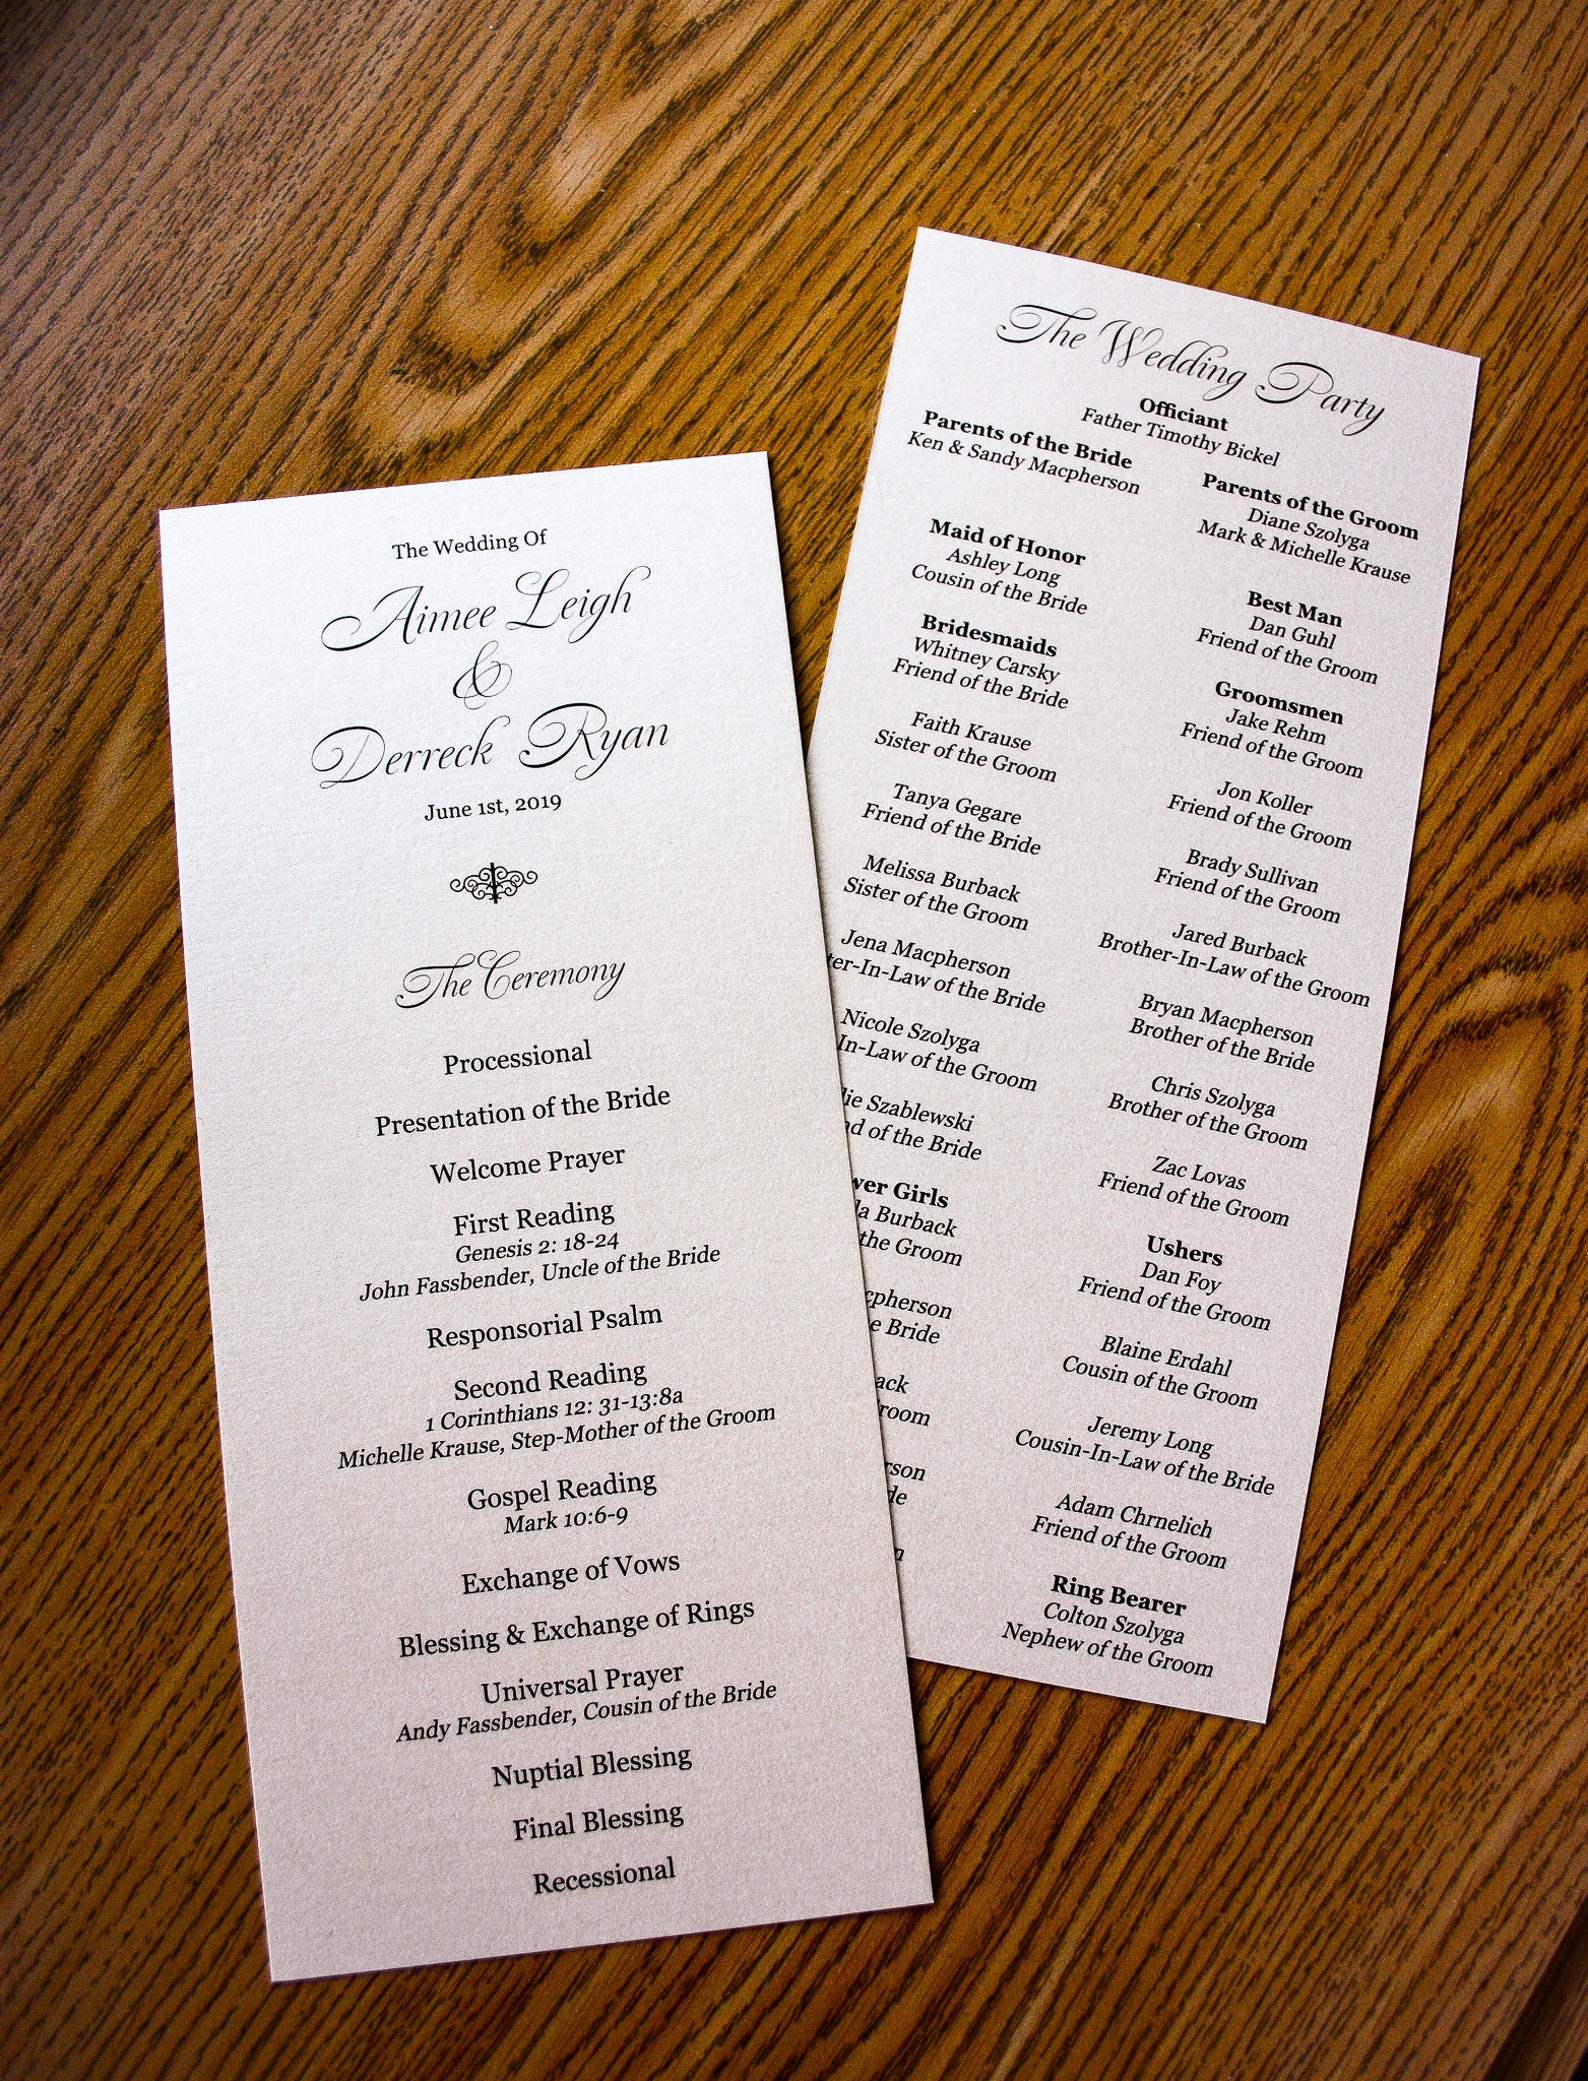 The Wedding Of
Aimee Leigh
&
Derreck Ryan
June 1st, 2019
The Ceremony
Processional
Presentation of the Bride
Welcome Prayer
First Reading
Genesis 2: 18-24
John Fassbender, Uncle of the Bride
Responsorial Psalm
Second Reading
1 Corinthians 12: 31-13:8a
Michelle Krause, Step-Mother of the Groom
Gospel Reading
Mark 10:6-9
Exchange of Vows
Blessing & Exchange of Rings
Universal Prayer
Andy Fassbender, Cousin of the Bride
Nuptial Blessing
Final Blessing
Recessional
The Wedding Party
Officiant
Father Timothy Bickel
Parents of the Bride
Ken & Sandy Macpherson
Maid of Honor
Ashley Long
Cousin of the Bride
Bridesmaids
Whitney Carsky
Friend of the Bride
Faith Krause
Sister of the Groom
Tanya Gegare
Friend of the Bride
Melissa Burback
Sister of the Groom
Jena Macpherson
-In-Law of the Bride
Nicole Szolyga
In-Law of the Groom
Szablewski
of the Bride
Girls
Burback
the Groom
Bride
Parents of the Groom
Diane Szolyga
Mark & Michelle Krause
Best Man
Dan Guhl
Friend of the Groom
Groomsmen
Jake Rehm
Friend of the Groom
Jon Koller
Friend of the Groom
Brady Sullivan
Friend of the Groom
Jared Burback
Brother-In-Law of the Groom
Bryan Macpherson
Brother of the Bride
Chris Szolyga
Brother of the Groom
Zac Lovas
Friend of the Groom
Ushers
Dan Foy
Friend of the Groom
Blaine Erdahl
Cousin of the Groom
Jeremy Long
Cousin-In-Law of the Bride
Adam Chrnelich
Friend of the Groom
Ring Bearer
Colton Szolyga
Nephew of the Groom